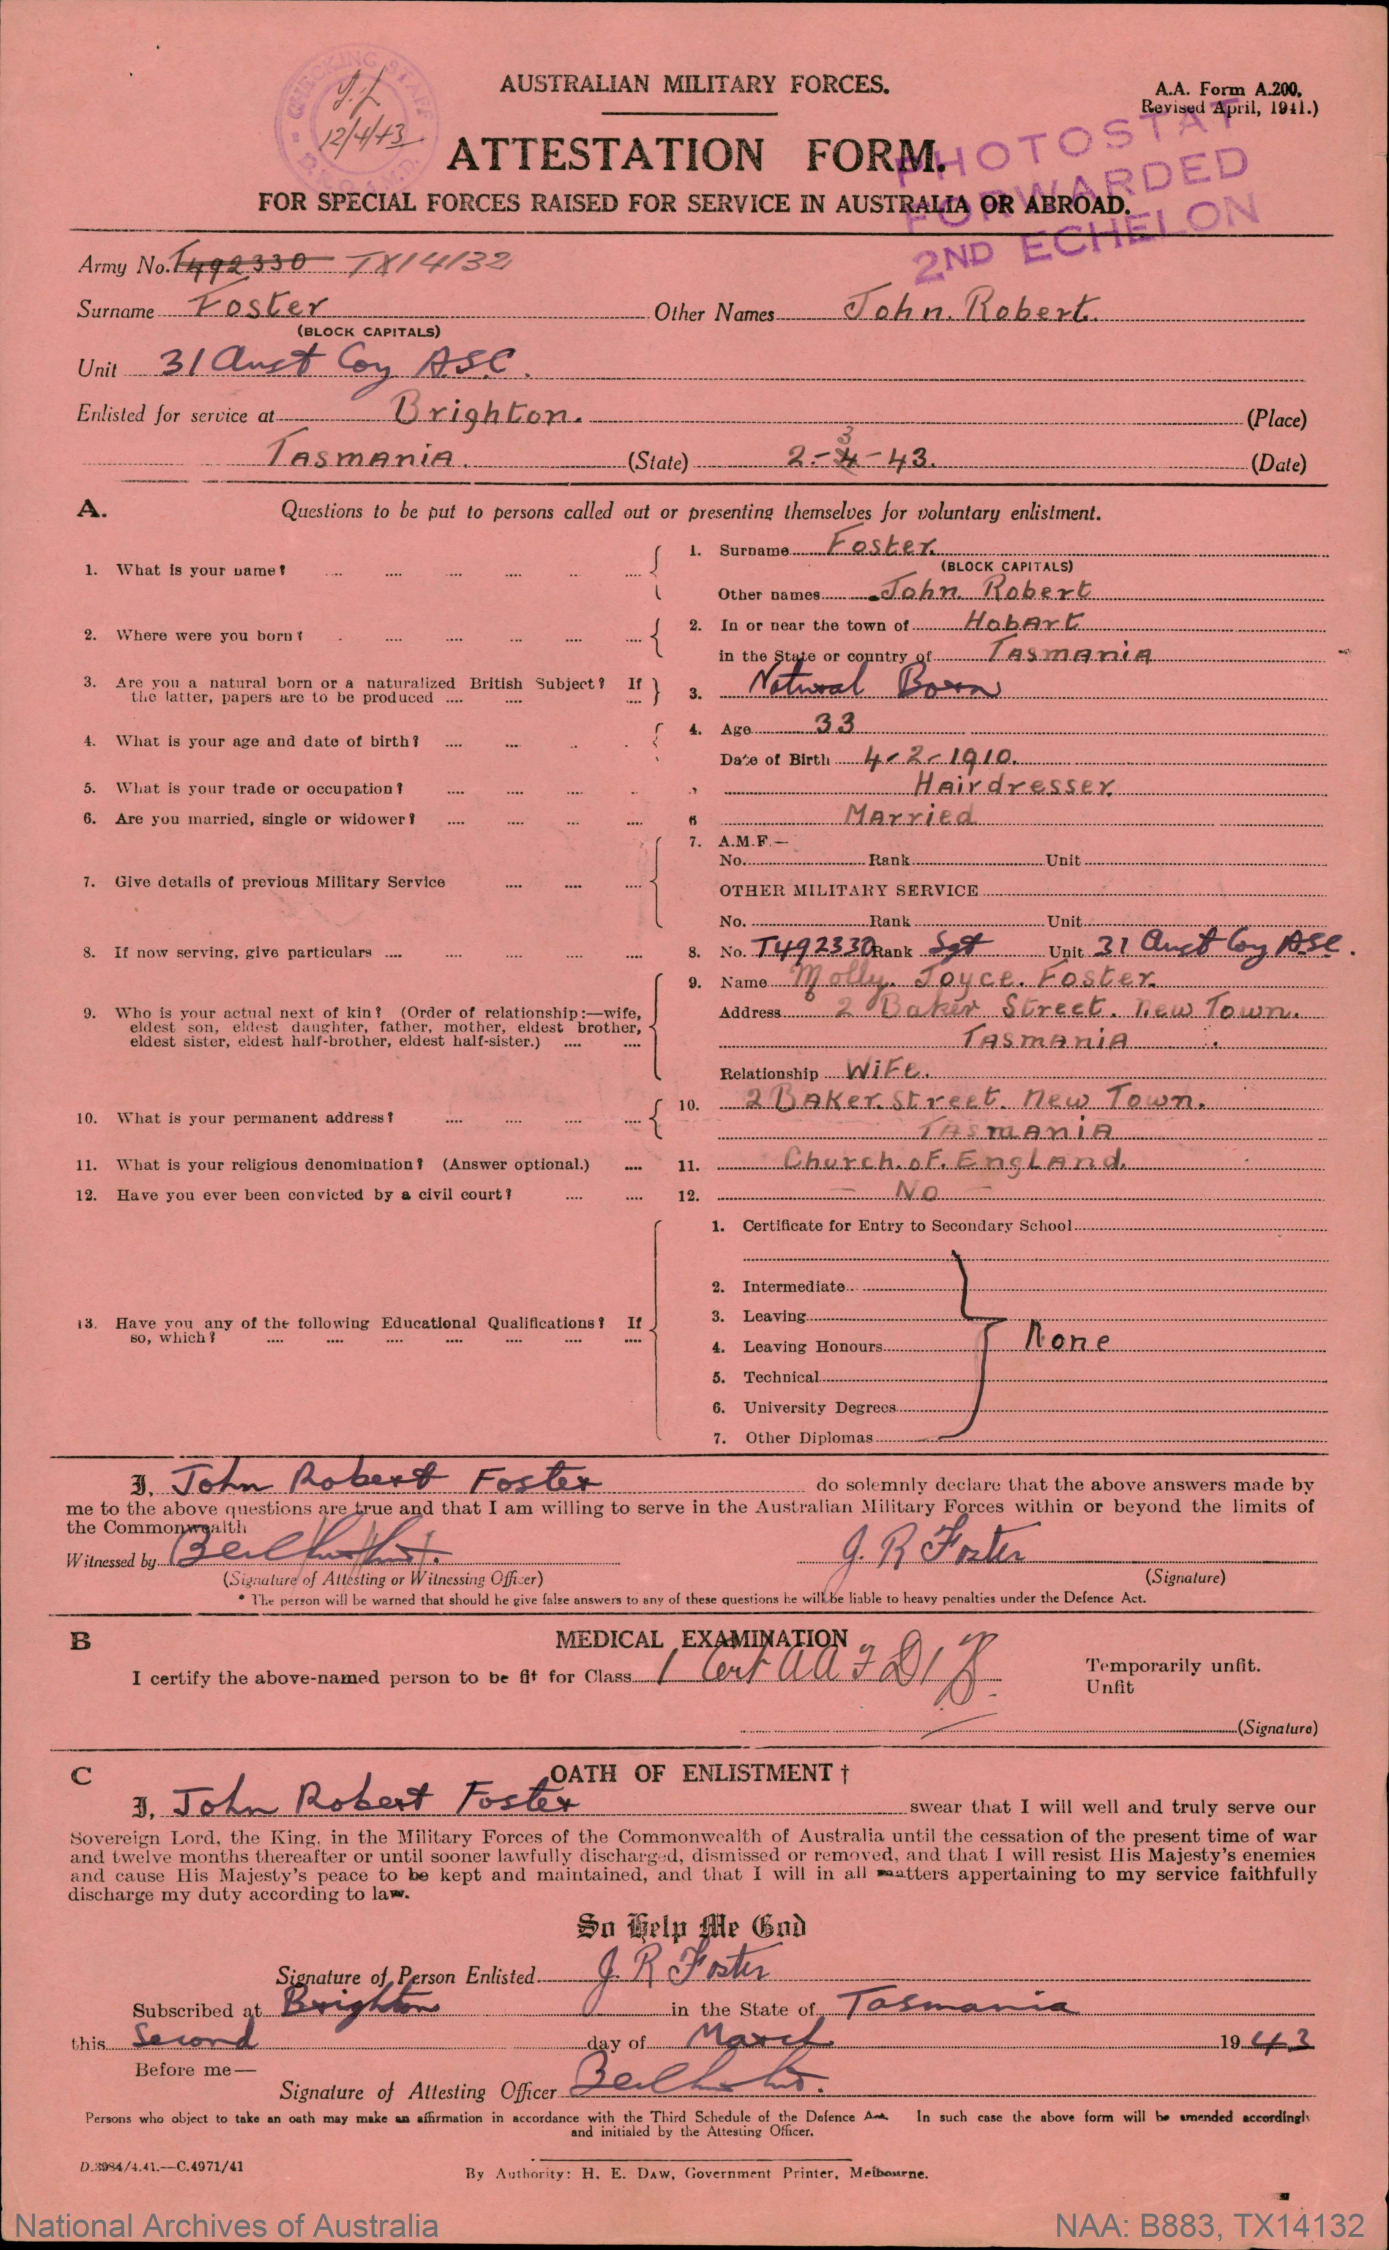 CHECKING STAFF
12/4/43
AUSTRALIAN MILITARY FORCES.
A.A. Form A.200.
Revised April, 1941.)
ATTESTATION FORM.
PHOTOSTAT
FORWARDED
2ND ECHELON
FOR SPECIAL FORCES RAISED FOR SERVICE IN AUSTRALIA OR ABROAD.
Army No. T492330 TX14132
Surname Foster Other Names John. Robert.
(BLOCK CAPITALS)
Unit 31 Aust Coy A.S.C.
Enlisted for service at Brighton. (Place)
Tasmania. (State) 2.-4 3-43. (Date)
A. Questions to be put to persons called out or presenting themselves for voluntary enlistment.
1. What is your name? 1. Surname Foster.
(BLOCK CAPITALS)
Other names John. Robert
2. Where were you born? 2. In or near the town of Hobart
in the State or country of Tasmania
3. Are you a natural born or a naturalized British Subject? If
the latter, papers are to be produced 3. Natural Born
4. What is your age and date of birth? 4. Age 33
Date of Birth 4-2-1910.
5. What is your trade or occupation? Hairdresser.
6. Are you married, single or widower? 6 Married
7. Give details of previous Military Service 7. A.M.F.—
No. Rank Unit
OTHER MILITARY SERVICE
No. Rank Unit
8. If now serving, give particulars 8. No. T492330 Rank Sgt Unit 31 Aust Coy ASC.
9. Who is your actual next of kin? (Order of relationship:—wife,
eldest son, eldest daughter, father, mother, eldest brother,
eldest sister, eldest half-brother, eldest half-sister.)
9. Name Molly. Joyce. Foster.
Address 2 Baker Street. New Town.
Tasmania
Relationship Wife.
10. What is your permanent address? 10. 2 Baker. Street. New Town.
Tasmania
11. What is your religious denomination? (Answer optional.) 11. Church. of. England.
12. Have you ever been convicted by a civil court? 12. — No —
13. Have you any of the following Educational Qualifications? If
so, which?
1. Certificate for Entry to Secondary School
2. Intermediate
3. Leaving
4. Leaving Honours None
5. Technical
6. University Degrees
7. Other Diplomas
I, John Robert Foster do solemnly declare that the above answers made by
me to the above questions are true and that I am willing to serve in the Australian Military Forces within or beyond the limits of
the Commonwealth
Witnessed by J. R Foster
(Signature of Attesting or Witnessing Officer) (Signature)
* The person will be warned that should he give false answers to any of these questions he will be liable to heavy penalties under the Defence Act.
B MEDICAL EXAMINATION
I certify the above-named person to be fit for Class 1 Cert AA F D1 Temporarily unfit.
Unfit
(Signature)
C OATH OF ENLISTMENT †
I, John Robert Foster swear that I will well and truly serve our
Sovereign Lord, the King, in the Military Forces of the Commonwealth of Australia until the cessation of the present time of war
and twelve months thereafter or until sooner lawfully discharged, dismissed or removed, and that I will resist His Majesty's enemies
and cause His Majesty's peace to be kept and maintained, and that I will in all matters appertaining to my service faithfully
discharge my duty according to law.
So Help Me God
Signature of Person Enlisted J. R Foster
Subscribed at Brighton in the State of Tasmania
this Second day of March 1943
Before me—
Signature of Attesting Officer
Persons who object to take an oath may make an affirmation in accordance with the Third Schedule of the Defence Act. In such case the above form will be amended accordingly
and initialed by the Attesting Officer.
D.3984/4.41.—C.4971/41
By Authority: H. E. Daw, Government Printer, Melbourne.
National Archives of Australia NAA: B883, TX14132